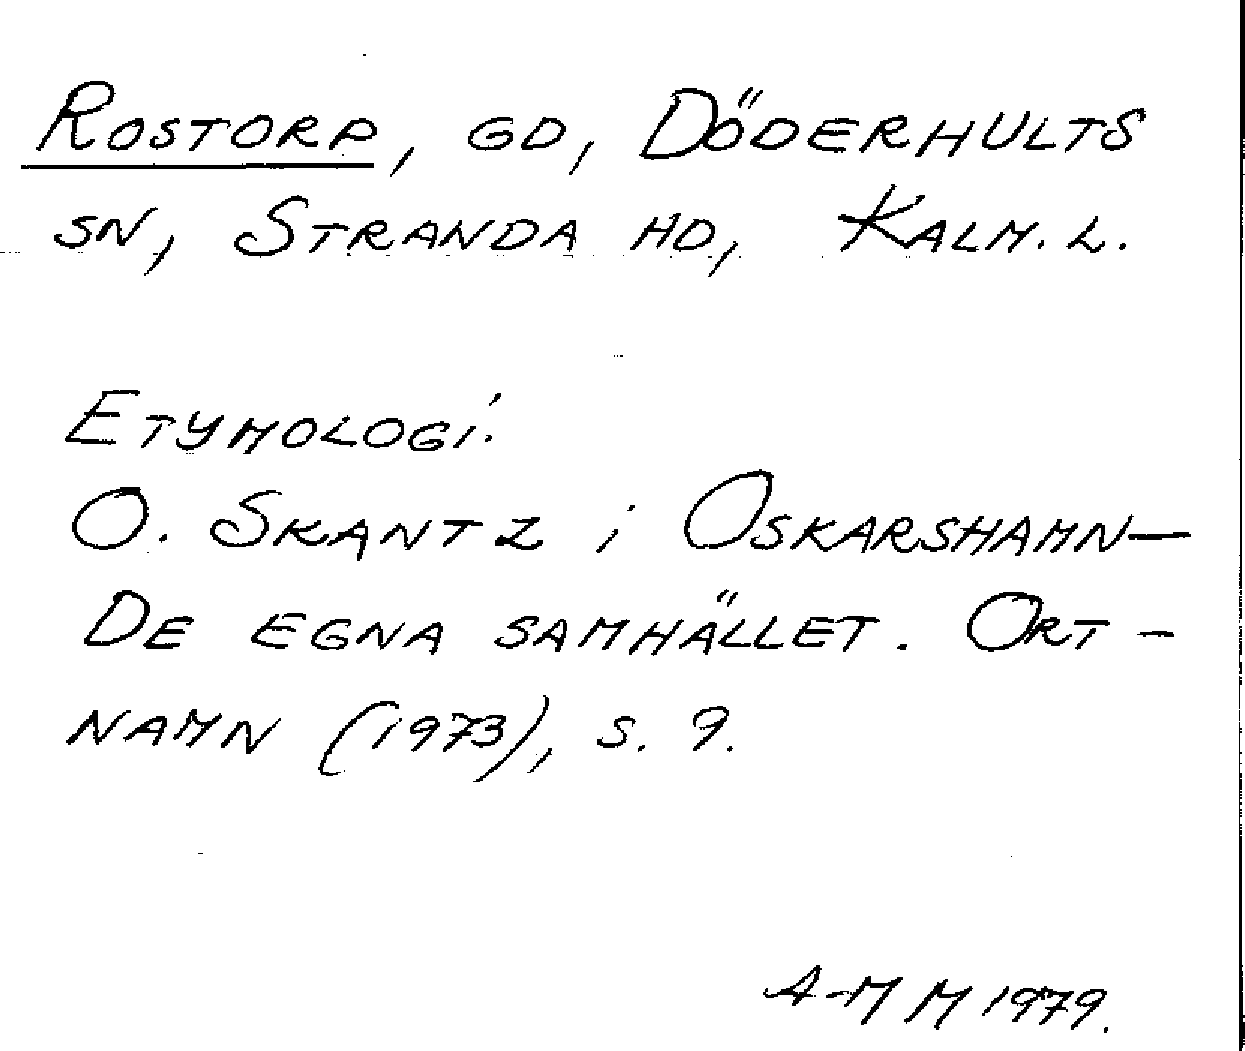 Rostorp, gd, Döderhults
sn, Stranda hd, Kalm. l.
Etymologi:
O. Skantz i Oskarshamn—
De egna samhället. Ort-
namn (1973), s. 9.
A-M M 1979.